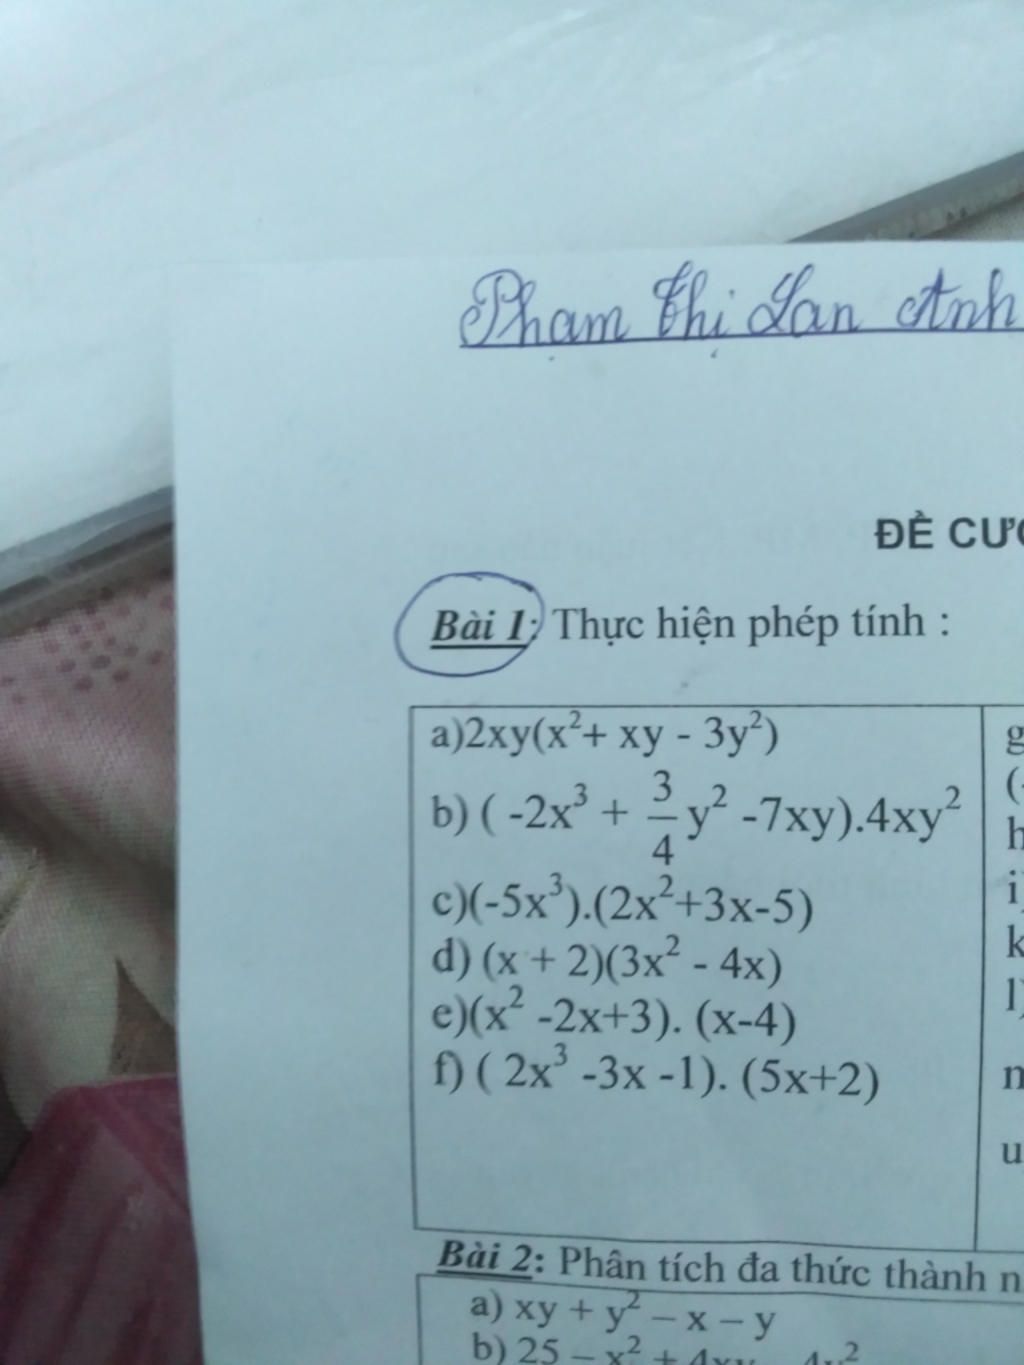 Phạm Thị Lan Anh
ĐỀ CƯƠ
Bài 1: Thực hiện phép tính :
a)2xy(x²+ xy - 3y²)
b) ( -2x³ + 3/4 y² -7xy).4xy²
c)(-5x³).(2x²+3x-5)
d) (x + 2)(3x² - 4x)
e)(x² -2x+3). (x-4)
f) ( 2x³ -3x -1). (5x+2)
g
(
h
i)
k
l)
u
Bài 2: Phân tích đa thức thành n
a) xy + y² – x – y
b) 25 – x² + 4xy – 4y²